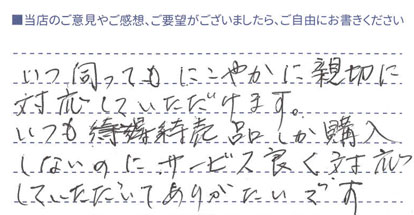 ■当店のご意見やご感想、ご要望がございましたら、ご自由にお書きください
いつ伺ってもにこやかに親切に
対応していただけます。
いつも 売 品しか購入
しないのにサービス良く対応
していただいてありがたいです